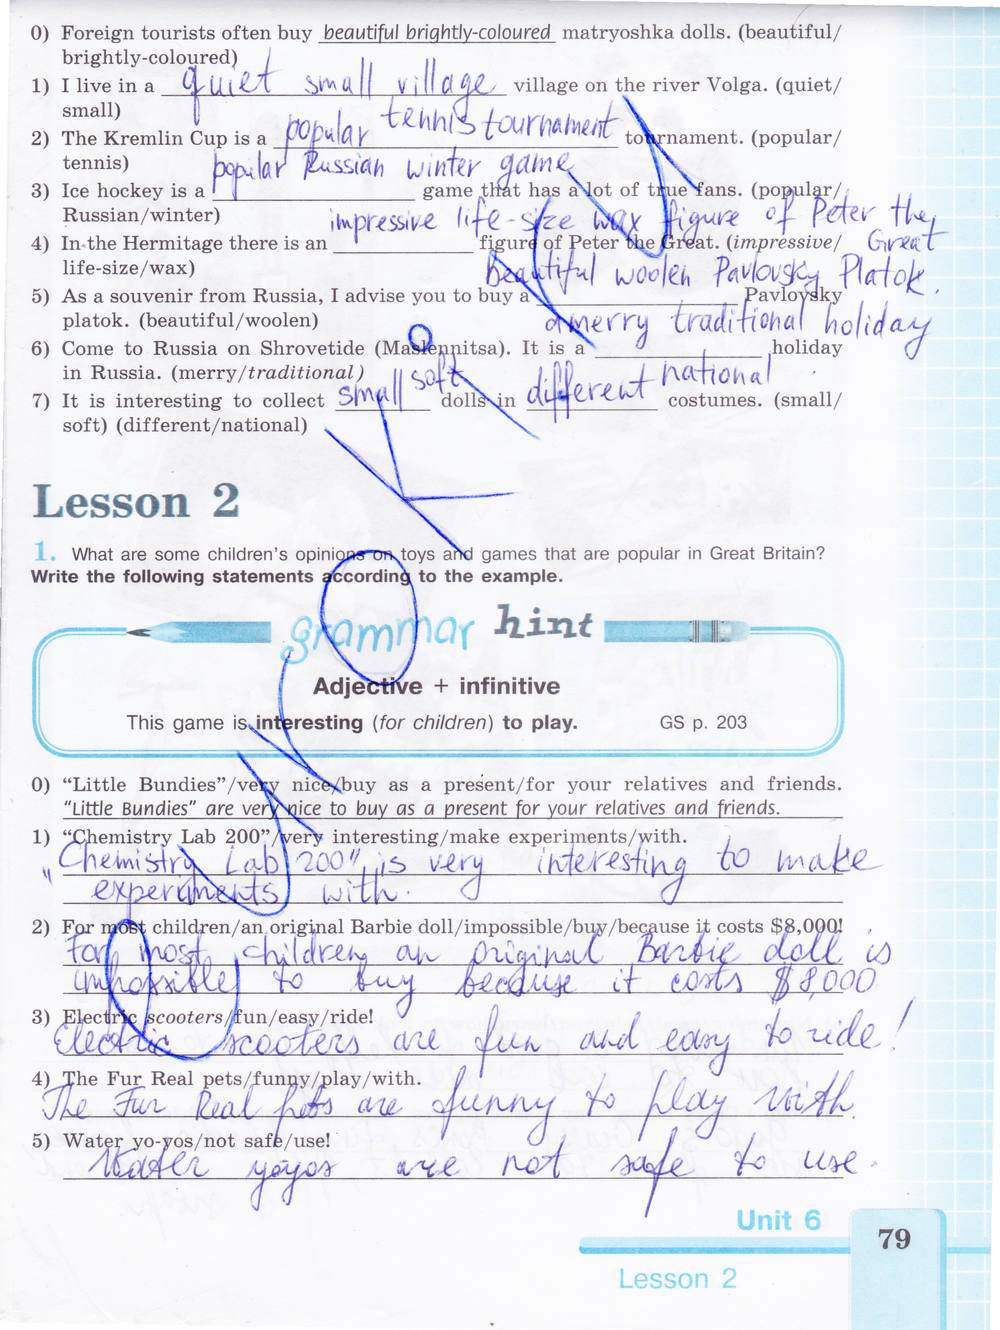 0) Foreign tourists often buy beautiful brightly-coloured matryoshka dolls. (beautiful/
brightly-coloured)
quiet small village
1) I live in a village on the river Volga. (quiet/
small)
popular tennis tournament
2) The Kremlin Cup is a tournament. (popular/
tennis)
popular Russian winter game
3) Ice hockey is a game that has a lot of true fans. (popular/
Russian/winter)
impressive life-size wax figure of Peter the
Great
4) In the Hermitage there is an figure of Peter the Great. (impressive/
life-size/wax)
beautiful woolen Pavlovsky Platok.
5) As a souvenir from Russia, I advise you to buy a Pavlovsky
platok. (beautiful/woolen)
a merry traditional holiday
6) Come to Russia on Shrovetide (Maslennitsa). It is a holiday
in Russia. (merry/traditional)
7) It is interesting to collect small soft dolls in different national costumes. (small/
soft) (different/national)
Lesson 2
1. What are some children's opinions on toys and games that are popular in Great Britain?
Write the following statements according to the example.
grammar hint
Adjective + infinitive
This game is interesting (for children) to play. GS p. 203
0) "Little Bundies"/very nice/buy as a present/for your relatives and friends.
"Little Bundies" are very nice to buy as a present for your relatives and friends.
1) "Chemistry Lab 200"/very interesting/make experiments/with.
"Chemistry Lab 200" is very interesting to make
experiments with.
2) For most children/an original Barbie doll/impossible/buy/because it costs $8,000!
For most children an original Barbie doll is
impossible to buy because it costs $8,000
3) Electric scooters/fun/easy/ride!
Electric scooters are fun and easy to ride!
4) The Fur Real pets/funny/play/with.
The Fur Real pets are funny to play with.
5) Water yo-yos/not safe/use!
Water yoyos are not safe to use.
Unit 6
79
Lesson 2